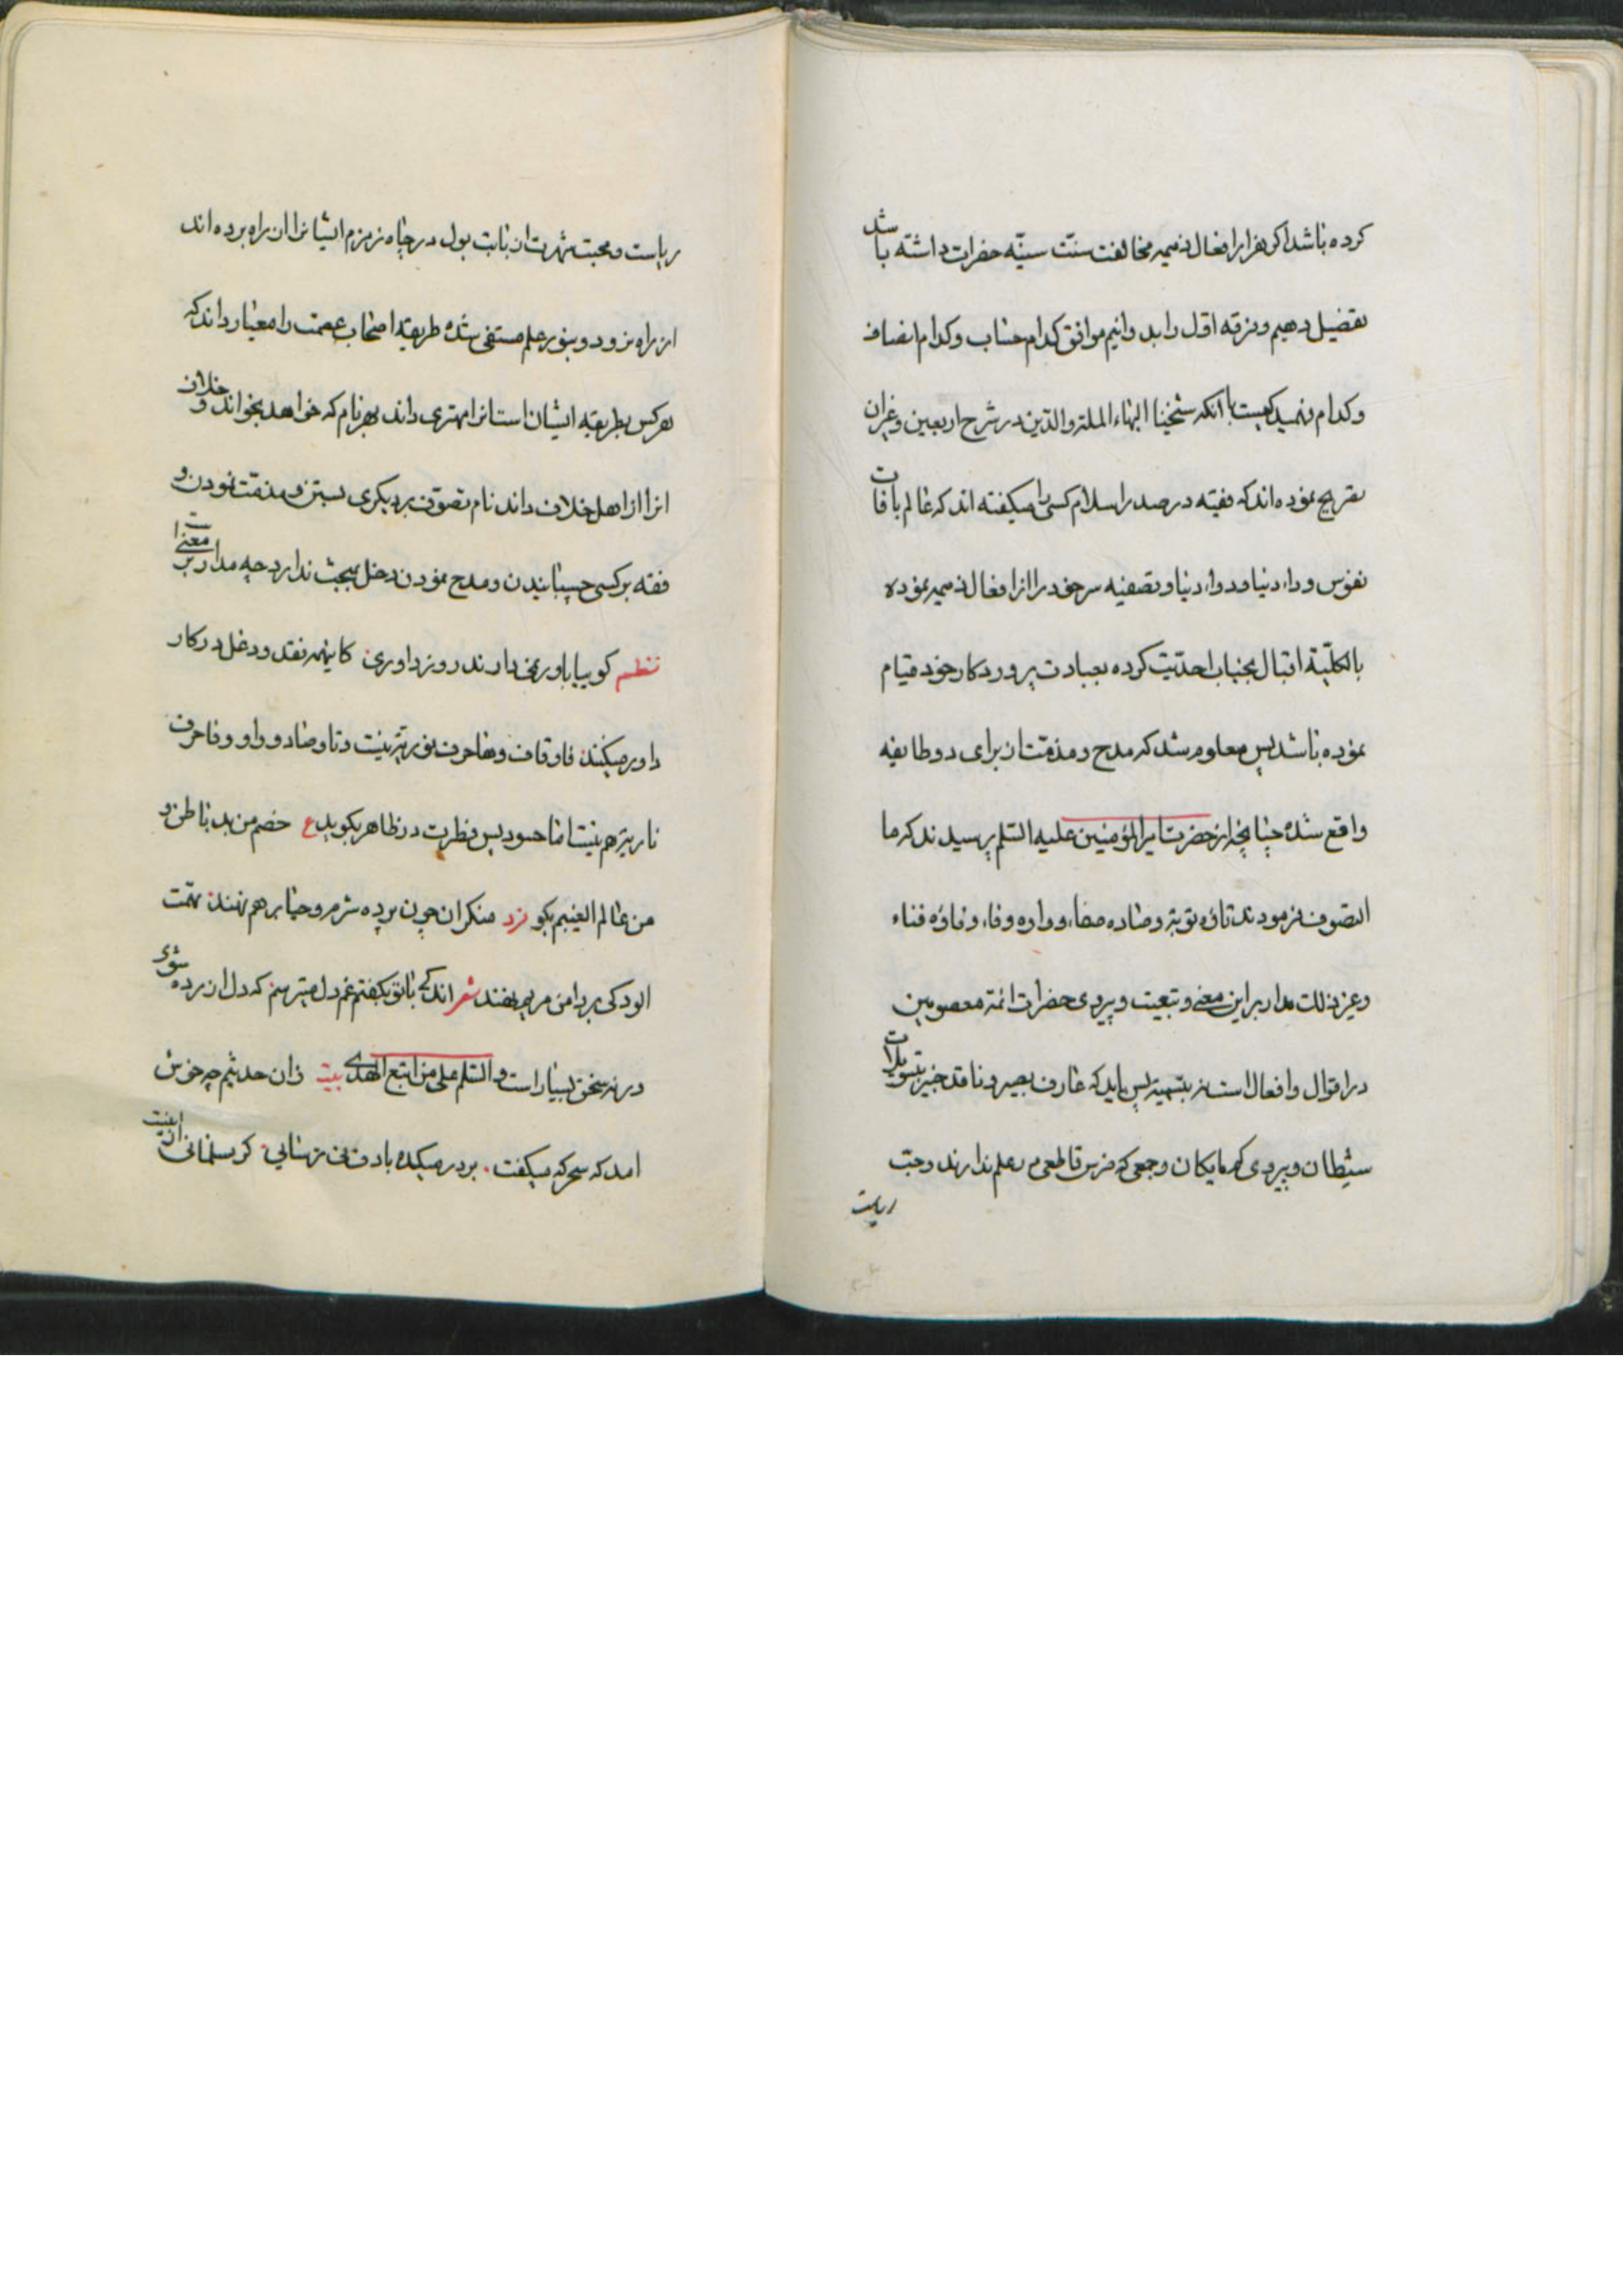 کرده باشد اکر هزار افعال ذمیمه مخالفت سنت سنیّه حضرات داشته باشد
تفضیل دهیم و فرقه اول را بد دانیم موافق کدام حساب و کدام انصاف
و کدام فهمیدکیست با آنکه شیخنا البهاء الملة والدین در شرح اربعین و غیر ان
تصریح نموده اند که فقیه در صدر اسلام کسی را میکفته اند که عالم بافات
نفوس و داء دنیا و دواء دنیا و تصفیه سر خود را از افعال ذمیمه نموده
بالکلیّه اقبال بجناب احدیّت کرده بعبادت پروردکار خود قیام
نموده باشد پس معلوم شد که مدح و مذمّت ان برای دو طایفه
واقع شده چنانچه از حضرت امیرالمؤمنین علیه السّلم پرسیدند که ما
التصوف فرمودند تاؤه توبة و صاده صفاء و واوه وفاء و فاؤه فناء
و غیر ذلک مدار بر این معنی و تبعیت و پیروی حضرات ائمة معصومین
در اقوال و افعال است نه بتسمیه پس باید که عارف بصیر و ناقد خبیر بتسویلات
شیطان و پیروی کمرایکان و جمعی که ضرس قاطعی در علم ندارند و حبّ
ریاست
ریاست و محبت شهرت ان بابت بول در چاه زمزم ایشانرا ان راه برده اند
از راه نرود و بنور علم مستفی شده طریقه اصحاب عصمت را معیار داند که
هر کس بطریقه ایشان است انرا مهتدی داند بهر نام که خواهد بخواند و خلاف
انرا از اهل خلاف داند نام تصوّف بر دیکری بستن و مذمّت نمودن و
فقه بر کسی چسبانیدن و مدح نمودن دخل ببحث ندارد چه مدار بر معنی است
نظم کوییا باور نمی دارند روز داوری کاینهمه نقد و دغل در کار
داور میکنند فا و قاف و ها حرف نوریّه نیست و تا و صاد و واو و فا حرف
ناریّه هم نیست اما حسود پس فطرت در ظاهر بکوید ع خصم من بد باطن و
من عالم الغیبم بکو فرد منکران چون پرده شرم و حیا بر هم نهند تهمت
الودکی بر دامن مریم نهند شعر اندکی با تو بکفتم غم دل میترسم که دل ازرده شوی
ورنه سخن بسیار است والسّلم علی من اتبع الهدی بیت زان حدیثم چه خوش
امد که سحرکه میکفت بر در میکده با دف و نی ترسایی کر مسلمانی ازینست